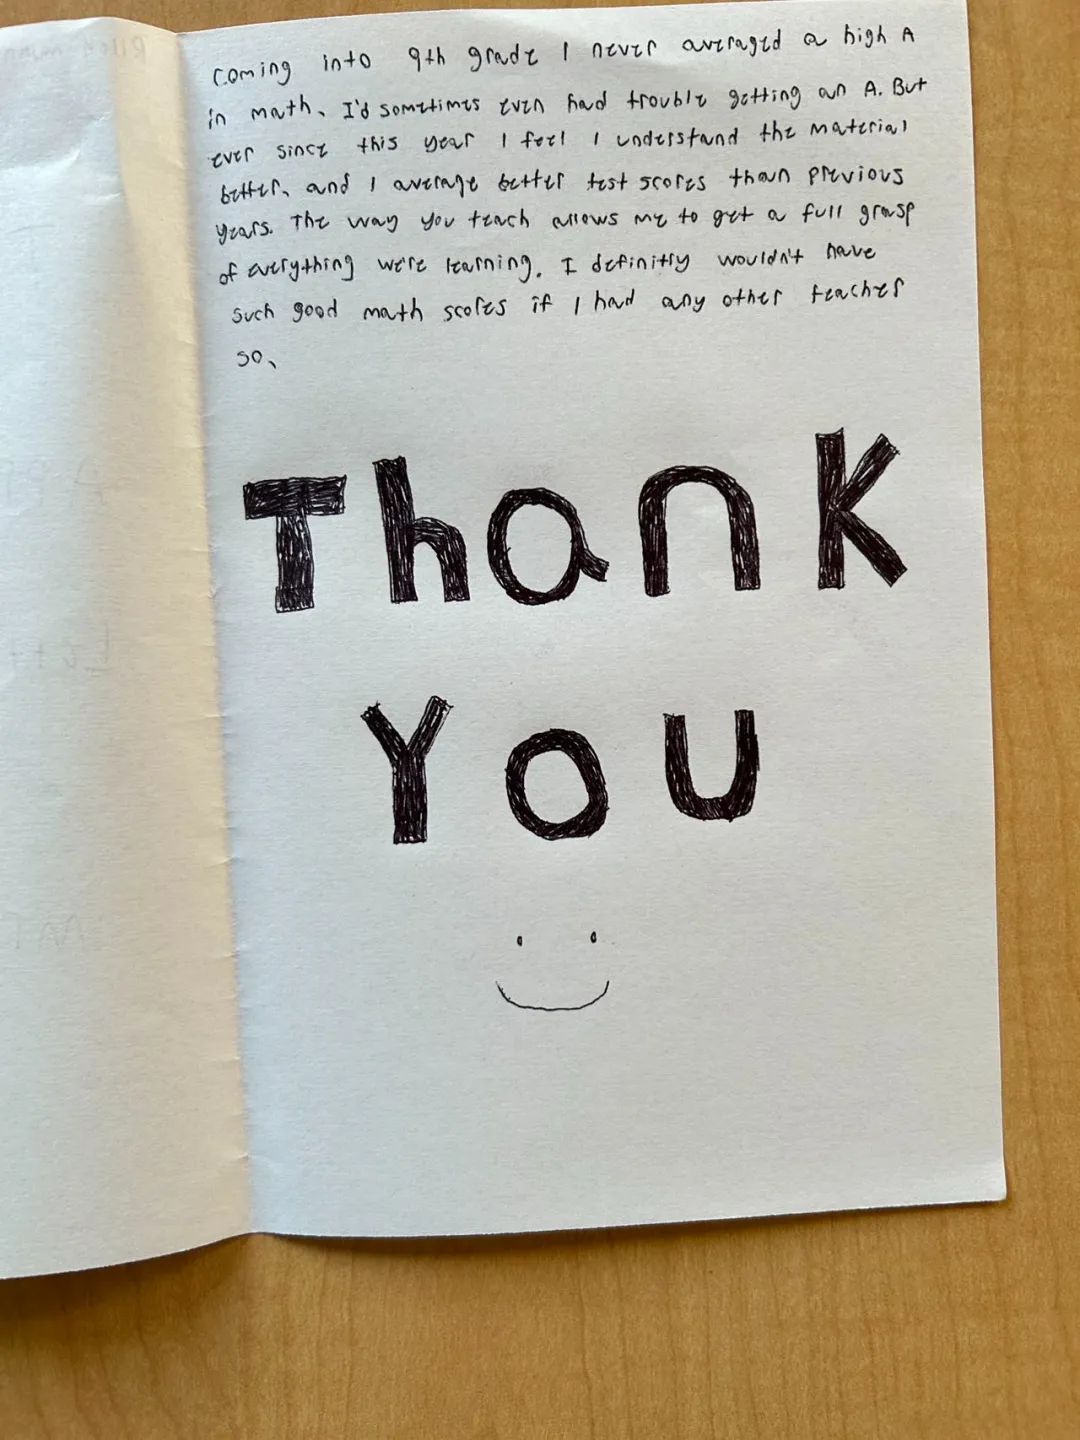 Coming into 9th grade I never averaged a high A
in math, I'd sometimes even had trouble getting an A. But
ever since this year I feel I understand the material
better, and I average better test scores than previous
years. The way you teach allows me to get a full grasp
of everything we're learning. I definitly wouldn't have
such good math scores if I had any other teacher
so,
Thank
You